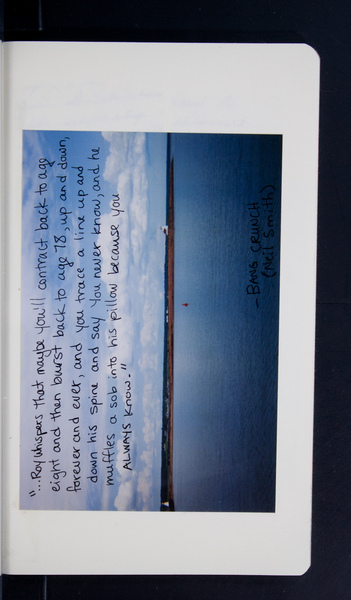 "...Roy whispers that maybe you'll contract back to age
eight and then burst back to age 78, up and down,
forever and ever, and you trace a line up and
down his spine and say you never know, and he
muffles a sob into his pillow because you
ALWAYS KNOW."
- BANG CRUNCH
(Neil Smith)